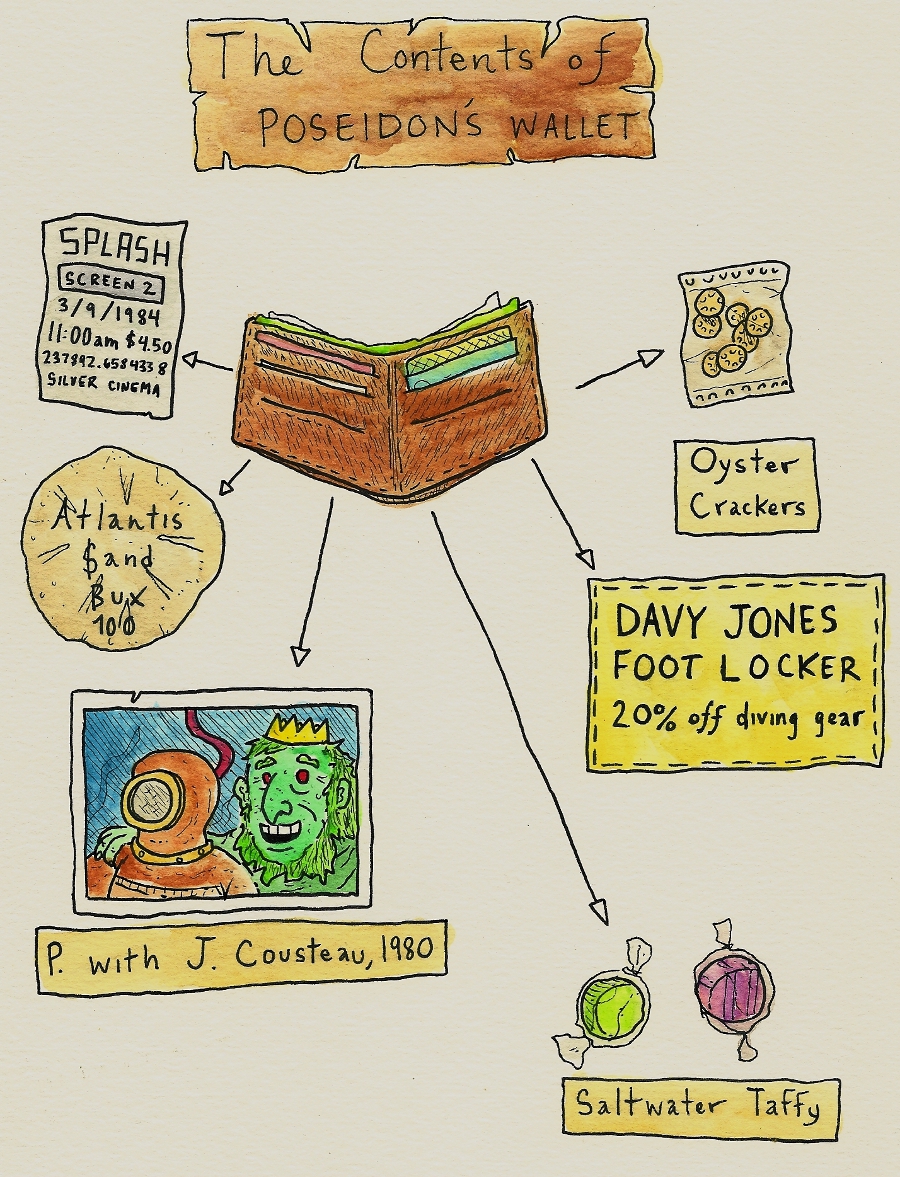 The Contents of
POSEIDON'S WALLET
SPLASH
SCREEN 2
3/9/1984
11:00am $4.50
237892.658433 8
SILVER CINEMA
Oyster
Crackers
Atlantis
$and
Bux
100
DAVY JONES
FOOT LOCKER
20% off diving gear
P. with J. Cousteau, 1980
Saltwater Taffy